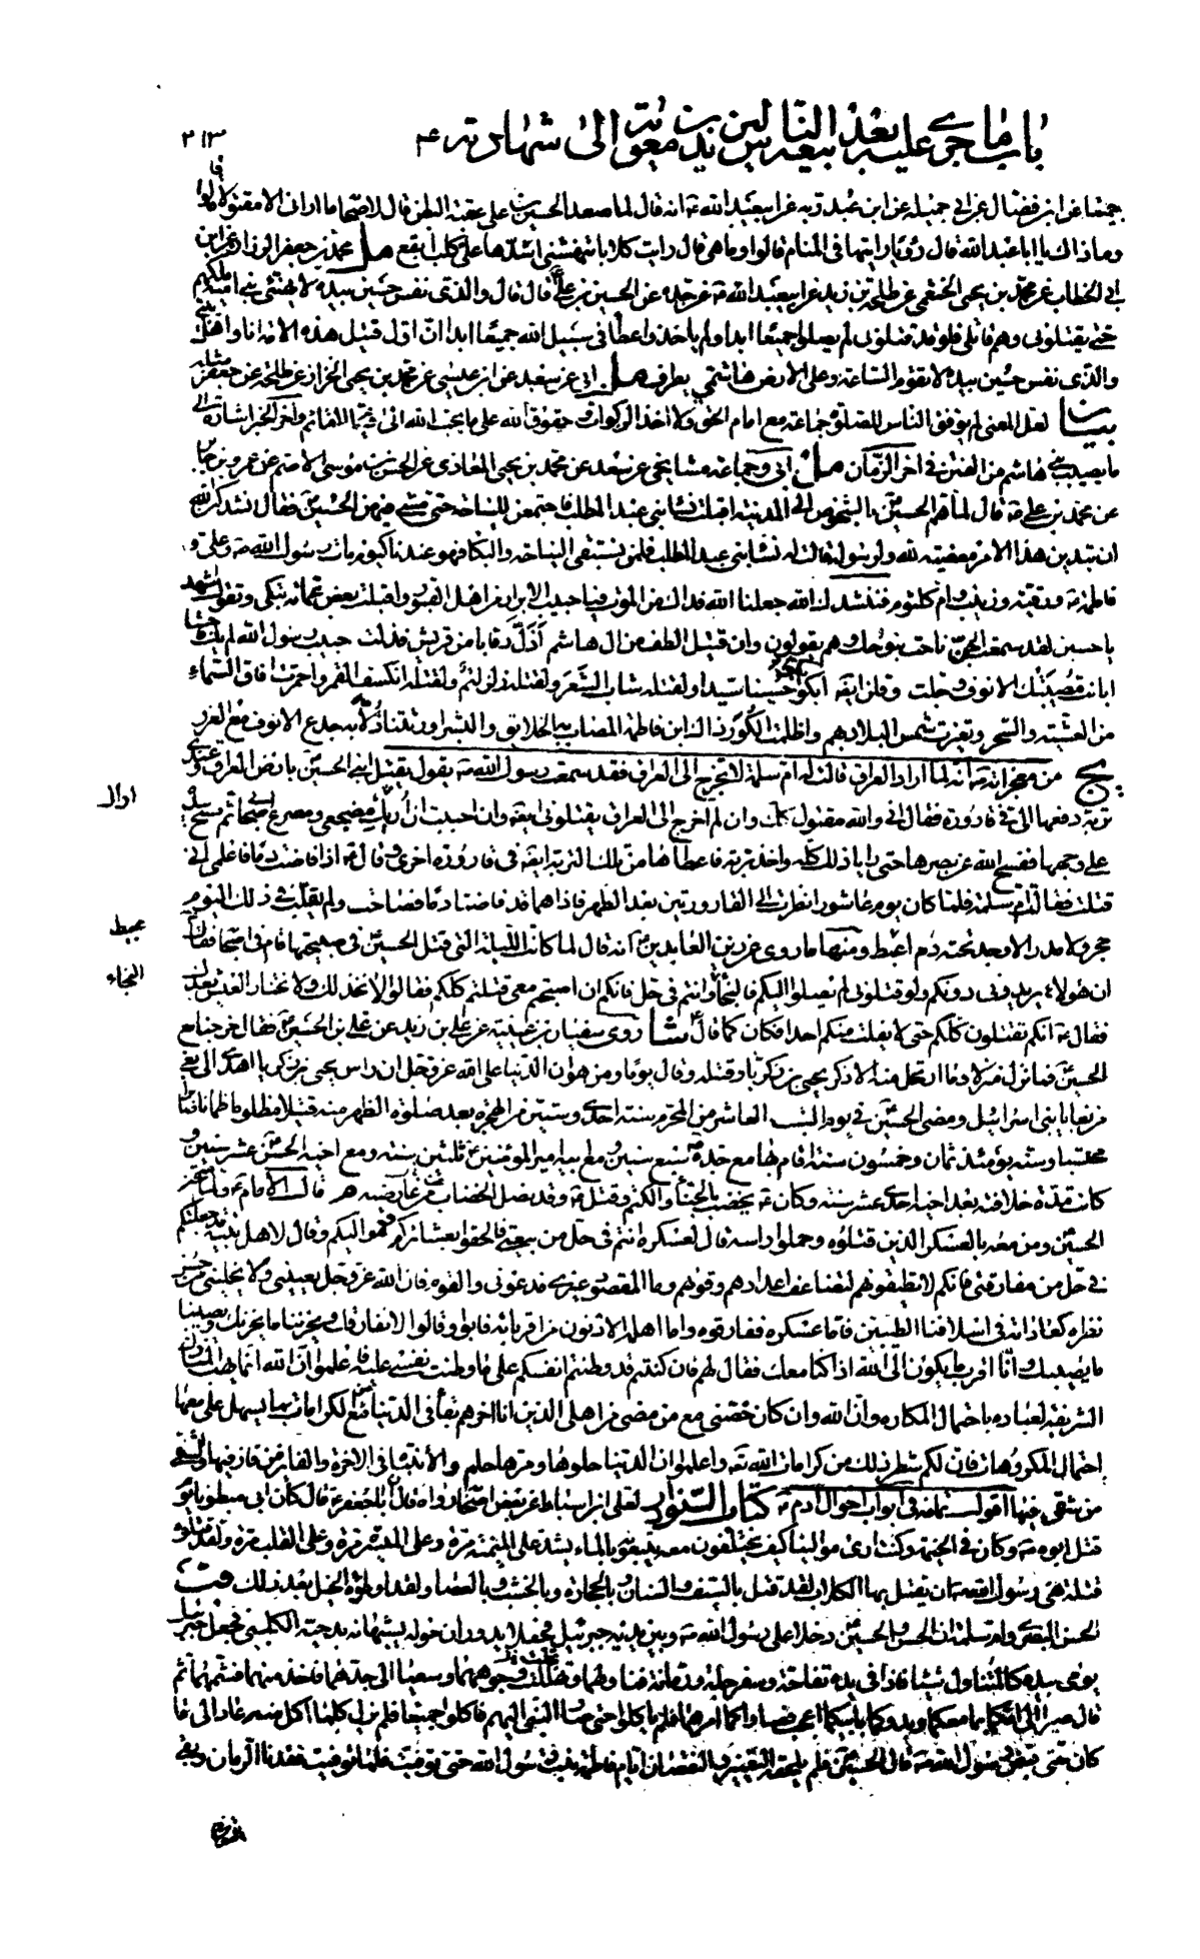 باب ما جرى عليه بعد بيعة الناس ليزيد بن معوية الى شهادته ۴
٢١٣
جميعا عن ابن فضال عن ابى جميلة عن ابن عبد ربه عن ابيعبد الله ع انه قال لما صعد الحسين بن على عقبة البطن قال لاصحابه ما ارانى الا مقتولا قالوا
وما ذاك يا ابا عبد الله قال رؤيا رايتها فى المنام قالوا وما هى قال رايت كلابا تنهشنى اشدها على كلب ابقع مل محمد بن جعفر الرزاز عن ابن
ابى الخطاب عن محمد بن يحيى الخثعمى عن طلحة بن زيد عن ابيعبد الله ع عن جده عن الحسين بن على ع قال قال والذى نفس حسين بيده لا ينتهى بنى امية ملكهم
حتى يقتلونى وهم قاتلى فلو قد قتلونى لم يصلوا جميعا ابدا ولم ياخذوا عطا فى سبيل الله جميعا ابدا ان اول قتيل هذه الامة انا واهل بيتى
والذى نفس حسين بيده لا تقوم الساعة وعلى الارض هاشمى يطرف مل ابى عن سعد عن ابن عيسى عن محمد بن يحيى الخزاز عن طلحة عن جعفر مثله
بيان لعل المعنى لم يوفق الناس للصلوة جماعة مع امام الحق ولا اخذ الزكوات وحقوق الله على ما يحب الله الى قيام القائم واخر الخبر اشارة الى
ما يصيب بنى هاشم من الفتن فى اخر الزمان مل ابى وجماعة مشايخى عن سعد عن محمد بن يحيى المعاذى عن الحسن بن موسى الاصم عن عمرو عن جابر
عن محمد بن على ع قال لما هم الحسين ع بالشخوص الى المدينة اقبلت نساء بنى عبد المطلب فاجتمعن للنياحة حتى مشى فيهن الحسين ع فقال انشدكن الله
ان تبدين هذا الامر معصية لله ولرسوله قالت له نساء بنى عبد المطلب فلمن نستبقى النياحة والبكا فهو عندنا كيوم مات رسول الله ص وعلى و
فاطمة ع ورقية وزينب وام كلثوم فننشدك الله جعلنا الله فداك من الموت فيا حبيب الابرار من اهل القبور واقبلت بعض عماته تبكى وتقول اشهد
يا حسين لقد سمعت الجن ناحت بنوحك وهم يقولون وان قتيل الطف من ال هاشم اذل رقابا من قريش فذلت حبيب رسول الله لم يك فاحشا
ابانت مصيبتك الانوف وجلت وقلن ايضا ابكوا حسينا سيدا ولقتله شاب الشعر ولقتله زلزلتم ولقتله انكسف القمر واحمرت افاق السماء
من العشية والسحر وتغيرت شمس البلاد بهم واظلمت الكور ذاك ابن فاطمة المصاب به الخلايق والبشر اورثتنا ذلا به جدع الانوف مع الغرر
يج من معجزاته ع انه لما اراد العراق قالت له ام سلمة لا تخرج الى العراق فقد سمعت رسول الله ص يقول يقتل ابنى الحسين بارض العراق وعندى
تربة دفعها الى فى قارورة فقال انى والله مقتول كذلك وان لم اخرج الى العراق يقتلونى ايضا وان احببت ان اريك مضجعى ومصرع اصحابى ثم مسح بيده
على وجهها ففسح الله عن بصرها حتى رايا ذلك كله واخذ تربة فاعطاها من تلك التربة ايضا فى قارورة اخرى وقال ع اذا فاضت دما فاعلمى انى
قتلت فقالت ام سلمة فلما كان يوم عاشورا نظرت الى القارورتين بعد الظهر فاذا هما قد فاضتا دما فصاحت ولم يقلب فى ذلك اليوم
حجر ولا مدر الا وجد تحته دم عبيط ومنها ما روى عن زين العابدين ع انه قال لما كانت الليلة التى قتل الحسين فى صبيحتها قام فى اصحابه فقال ع
ان هؤلاء يريدونى دونكم ولو قتلونى لم يصلوا اليكم فالنجأ النجأ وانتم فى حل فانكم ان اصبحتم معى قتلتم كلكم فقالوا لا نخذلك ولا نختار العيش بعدك
فقال ع انكم تقتلون كلكم حتى لا يفلت منكم احد فكان كما قال ع شا روى سفيان بن عيينة عن على بن زيد عن على بن الحسين ع فقال خرجنا مع
الحسين ع فما نزل منزلا وما ارتحل منه الا ذكر يحيى بن زكريا وقتله وقال يوما ومن هوان الدنيا على الله عز وجل ان راس يحيى بن زكريا اهدى الى بغى
من بغايا بنى اسرائيل ومضى الحسين ع فى يوم السبت العاشر من المحرم سنة احدى وستين من الهجرة بعد صلوة الظهر منه قتيلا مظلوما ظمانا صابرا
محتسبا وسنه يومئذ ثمان وخمسون سنة اقام بها مع جده ص سبع سنين ومع ابيه امير المؤمنين ع ثلثين سنة ومع اخيه الحسن ع عشر سنين و
كانت مدة خلافته بعد اخيه احدى عشر سنة وكان ع يخضب بالحناء والكتم وقتل ع وقد نصل الخضاب من عارضيه م قال الامام ع ولما امتحن
الحسين ومن معه بالعسكر الذين قتلوه وحملوا راسه قال لعسكره انتم فى حل من بيعتى فالحقوا بعشائركم ومواليكم وقال لاهل بيته قد جعلتكم
فى حل من مفارقتى فانكم لا تطيقونهم لتضاعف اعدادهم وقوتهم وما المقصود غيرى فدعونى والقوم فان الله عز وجل يعيننى ولا يخلينى من حسن
نظره كعاداته فى اسلافنا الطيبين فاما عسكره ففارقوه واما اهله الادنون من اقربائه فابوا وقالوا لا نفارقك ويحزننا ما يحزنك ويصيبنا
ما يصيبك وانا اقرب ما يكون الى الله اذا كنا معك فقال لهم فان كنتم قد وطنتم انفسكم على ما وطنت نفسى عليه فاعلموا ان الله انما يهب المنازل
الشريفة لعباده باحتمال المكاره وان الله وان كان خصنى مع من مضى من اهلى الذين انا اخرهم بقاء فى الدنيا من الكرامات بما يسهل على معها
احتمال المكروهات فان لكم شطر ذلك من كرامات الله تع واعلموا ان الدنيا حلوها ومرها حلم والانتباه فى الاخرة والفائز من فاز فيها والشقى
من شقى فيها اقول تمامه فى ابواب احوال ادم ع كتاب النوادر لعلى بن اسباط عن بعض اصحابه رواه قال ان ابا جعفر ع قال كان ابى مبطونا يوم
قتل ابوه ع وكان فى الخيمة وكنت ارى موالينا كيف يختلفون معه يتبعونه بالماء يشد على الميمنة مرة وعلى الميسرة مرة وعلى القلب مرة ولقد قتلوه
قتلة نهى رسول الله ص ان يقتل بها الكلاب لقد قتل بالسيف والسنان وبالحجارة وبالخشب وبالعصا ولقد اوطؤه الخيل بعد ذلك قب
الحسن البصرى وام سلمة ان الحسن والحسين ع دخلا على رسول الله ص وبين يديه جبرئيل فجعلا يدوران حوله يشبهانه بدحية الكلبى فجعل جبرئيل
يومى بيده كالمتناول شيئا فاذا فى يده تفاحة وسفرجلة ورمانة فناولهما وتهللت وجوههما وسعيا الى جدهما فاخذ منهما فشمهما ثم
قال صيرا الى امكما بما معكما وبدوكما بابيكما اعجب فصارا كما امرهما فلم ياكلوا حتى صار النبى اليهم فاكلوا جميعا فلم يزل كلما اكل منه عاد الى ما
كان حتى قبض رسول الله ص قال الحسين ع فلم يلحقه التغيير والنقصان ايام فاطمة بنت رسول الله حتى توفيت فلما توفيت فقدنا الرمان وبقى
اراك
عبيط
النجاء
التفاح